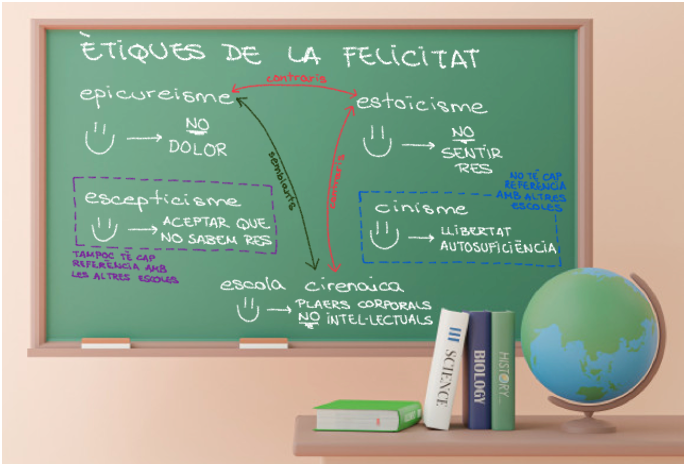 ÈTIQUES DE LA FELICITAT
contraris
epicureisme
estoïcisme
NO
DOLOR
NO
SENTIR
RES
semblants
contraris
NO TÉ CAP
REFERÈNCIA
AMB ALTRES
ESCOLES
escepticisme
ACEPTAR QUE
NO SABEM RES
cinisme
LLIBERTAT
AUTOSUFICIÈNCIA
TAMPOC TÉ CAP
REFERÈNCIA AMB
LES ALTRES ESCOLES
escola cirenaica
PLAERS CORPORALS
NO INTEL·LECTUALS
SCIENCE
BIOLOGY
HISTORY